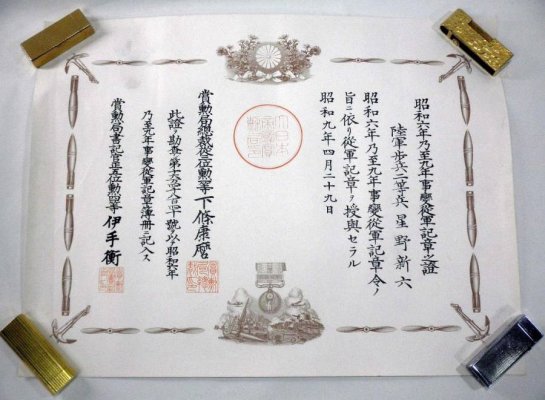 昭和六年乃至九年事變從軍記章之證
陸軍歩兵二等兵 星野新六
昭和六年乃至九年事變從軍記章令ノ
旨ニ依リ從軍記章ヲ授與セラル
昭和九年四月二十九日
大日本
賞勲局總裁從三位勲二等 下條康麿
此證ヲ勘査シ第 號ヲ以テ昭和六年
乃至九年事變從軍記章簿冊ニ記入ス
賞勲局書記官正五位勲四等 伊手衡